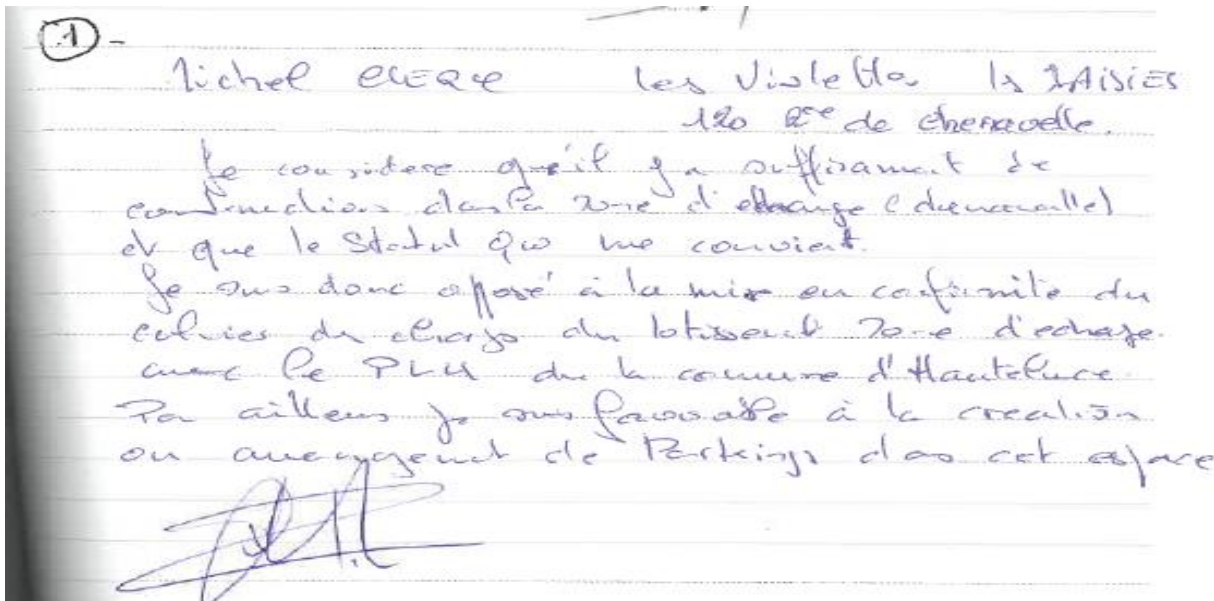 ①-
Michel CLERC Les Violettes Les SAISIES
120 Rte de chenavelle.
Je considere qu'il y a suffisament de
constructions dans la zone d'echange (chenavelle)
et que le Statut Quo me convient.
Je suis donc opposé à la mise en conformité du
cahier du charge du lotissement zone d'echange
avec le PLU de la commune d'Hauteluce.
Par ailleurs je suis favorable à la creation
ou amenagement de Parkings dans cet espace